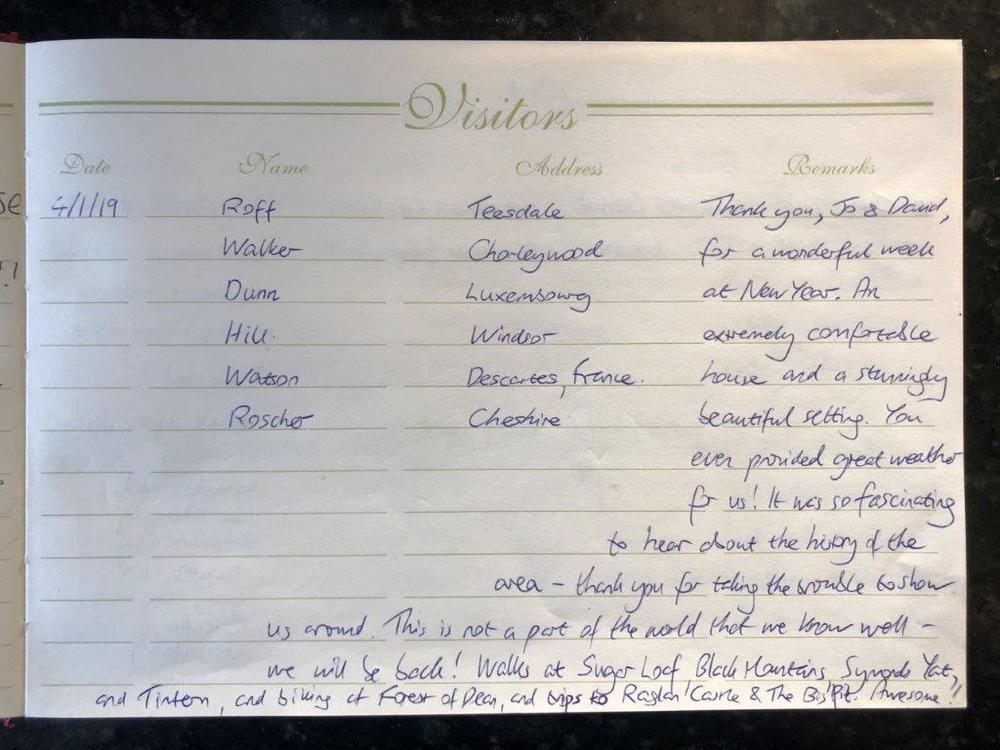 Visitors
Date Name Address Remarks
4/1/19 Roff Teesdale Thank you, Jo & David,
Walker Chorleywood for a wonderful week
Dunn Luxembourg at New Year. An
Hill Windsor extremely comfortable
Watson Descartes, France. house and a stunningly
Roscher Cheshire beautiful setting. You
even provided great weather
for us! It was so fascinating
to hear about the history of the
area - thank you for taking the trouble to show
us around. This is not a part of the world that we know well -
we will be back! Walks at Sugar Loaf, Black Mountains, Symonds Yat,
and Tintern, and biking at Forest of Dean, and trips to Raglan Castle & The Big Pit. Awesome!!